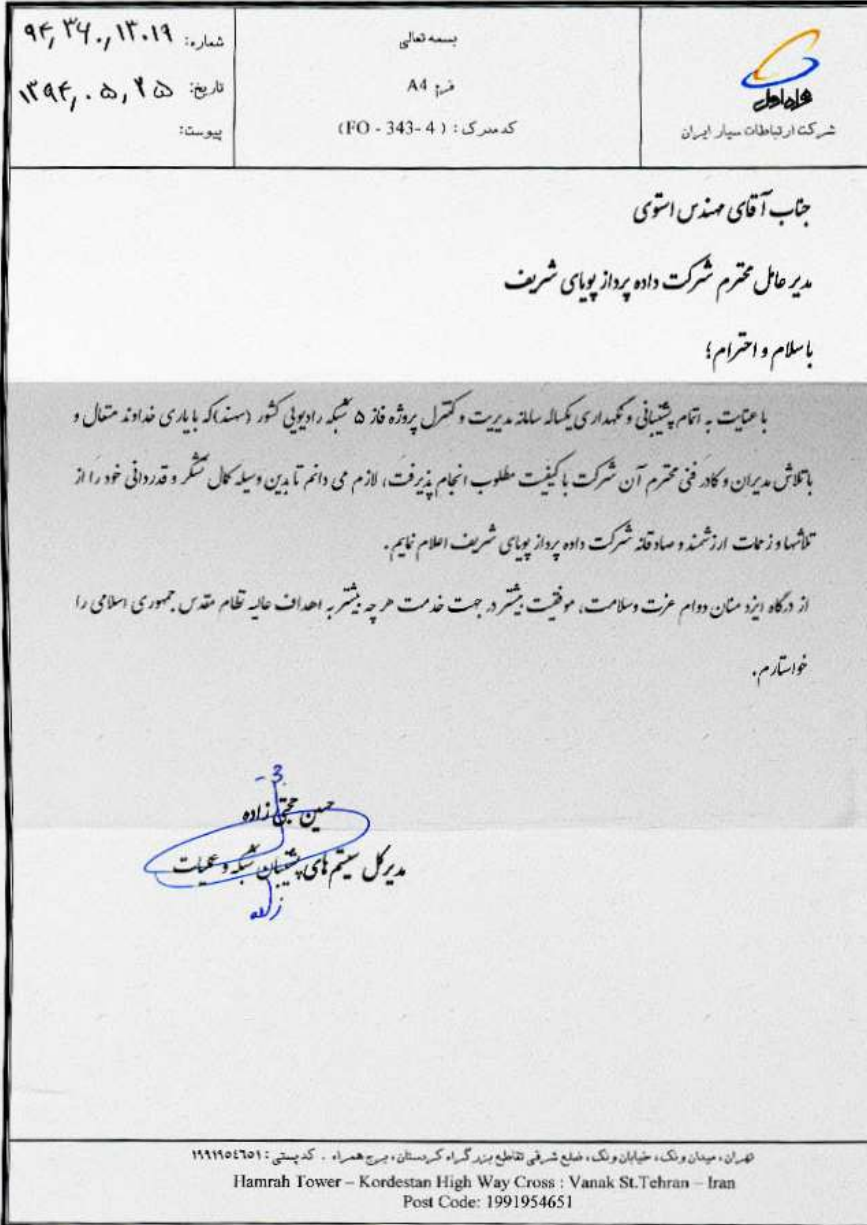 شماره: ۹۴,۳۴۰,۱۳۰۱۹
تاریخ: ۱۳۹۴,۰۵,۲۵
پیوست:
بسمه تعالی
فرم A4
کد مدرک : ( FO - 343- 4)
همراه اول
شرکت ارتباطات سیار ایران
جناب آقای مهندس استوی
مدیر عامل محترم شرکت داده پرداز پویای شریف
با سلام و احترام ؛
با عنایت به اتمام پشتیبانی و نگهداری یکساله سامانه مدیریت و کنترل پروژه فاز ۵ شبکه رادیویی کشور (سهند)که با یاری خداوند متعال و
با تلاش مدیران و کادر فنی محترم آن شرکت با کیفیت مطلوب انجام پذیرفت، لازم می دانم تا بدین وسیله کمال تشکر و قدردانی خود را از
تلاشها و زحمات ارزشمند و صادقانه شرکت داده پرداز پویای شریف اعلام نمایم.
از درگاه ایزد منان دوام عزت وسلامت، موفقیت بیشتر در جهت خدمت هر چه بیشتر به اهداف عالیه نظام مقدس جمهوری اسلامی را
خواستارم.
حسین حجتی زاده
مدیرکل سیستم های پشتیبان شبکه و عملیات
تهران، میدان ونک، خیابان ونک، ضلع شرقی تقاطع بزرگراه کردستان، برج همراه . کدپستی : ۱۹۹۱۹۵٤٦٥۱
Hamrah Tower – Kordestan High Way Cross : Vanak St.Tehran – Iran
Post Code: 1991954651